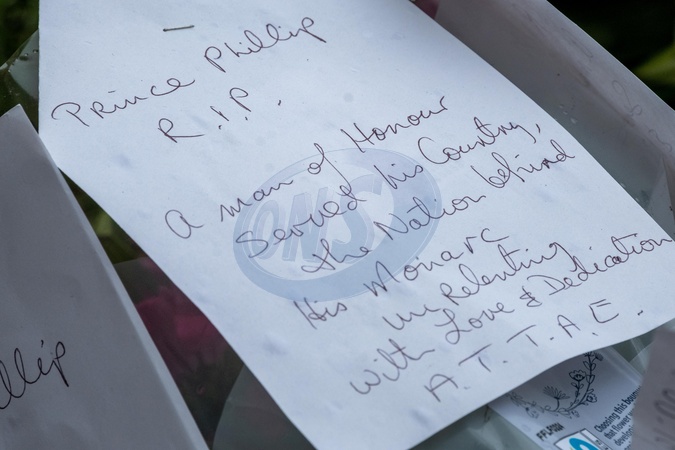 Prince Phillip
R.I.P.
A man of Honour
Served his Country,
the Nation behind
His Monarc
unRelenting
with Love & Dedication
A.T.T.A.E.
ONS
llip
Choosing this bou